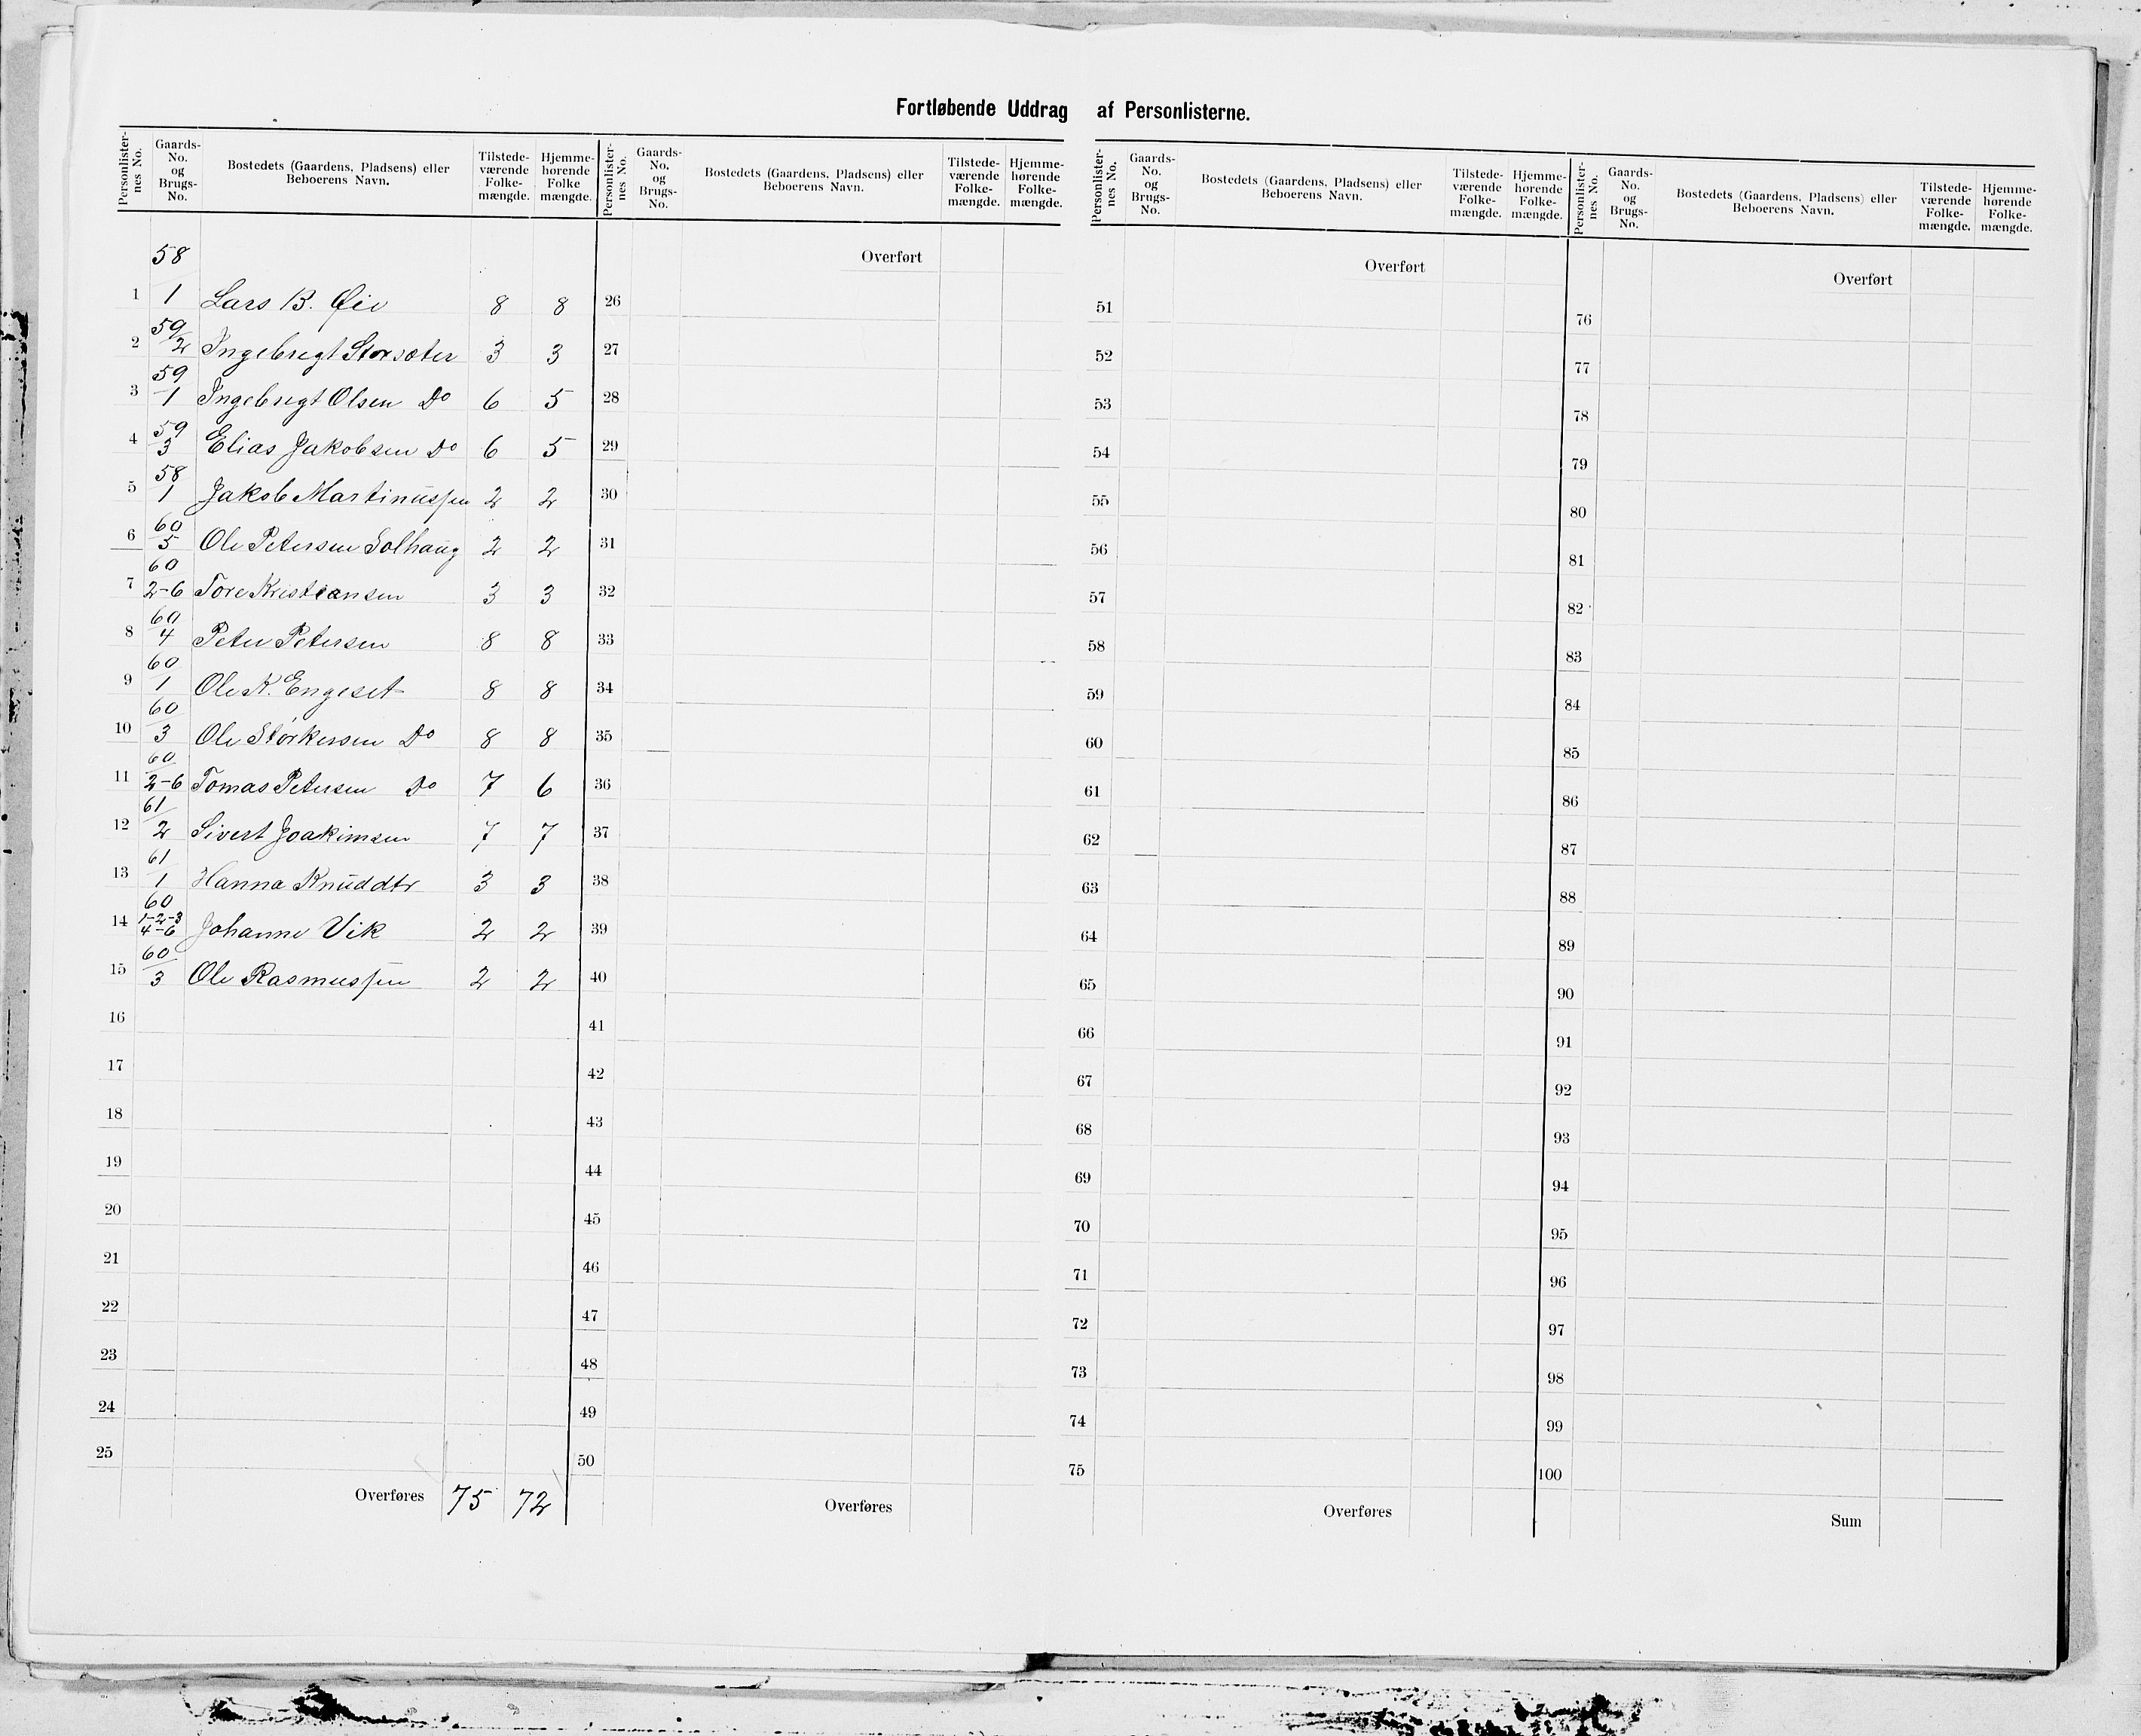 Fortløbende Uddrag af Personlisterne.
Personlister-nes No. Gaards-No. og Brugs-No. Bostedets (Gaardens, Pladsens) eller Beboerens Navn. Tilstede-værende Folke-mængde. Hjemme-hørende Folke mængde.
Personlister-nes No. Gaards-No. og Brugs-No. Bostedets (Gaardens, Pladsens) eller Beboerens Navn. Tilstede-værende Folke-mængde. Hjemme-hørende Folke-mængde.
Personlister-nes No. Gaards-No. og Brugs-No. Bostedets (Gaardens, Pladsens) eller Beboerens Navn. Tilstede-værende Folke-mængde. Hjemme-hørende Folke-mængde.
Personlister-nes No. Gaards-No. og Brugs-No. Bostedets (Gaardens, Pladsens) eller Beboerens Navn. Tilstede-værende Folke-mængde. Hjemme-hørende Folke-mængde.
1 58/1 Lars B. Øie 8 8
2 59/2 Ingebregt Storsæter 3 3
3 59/1 Ingebregt Olsen Do 6 5
4 59/3 Elias Jakobsen Do 6 5
5 58/1 Jakob Martinussen 2 2
6 60/5 Ole Petersen Solhaug 2 2
7 60/2-6 Tore Kristiansen 3 3
8 60/4 Peter Petersen 8 8
9 60/1 Ole K. Engeset 8 8
10 60/3 Ole Størkersen Do 8 8
11 60/2-6 Tomas Petersen Do 7 6
12 61/2 Sivert Joakimsen 7 7
13 61/1 Hanna Knuddtr 3 3
14 60/1-2-3 4-6 Johanne Vik 2 2
15 60/3 Ole Rasmussen 2 2
16
17
18
19
20
21
22
23
24
25
Overføres 75 72
Overført
26
27
28
29
30
31
32
33
34
35
36
37
38
39
40
41
42
43
44
45
46
47
48
49
50
Overføres
Overført
51
52
53
54
55
56
57
58
59
60
61
62
63
64
65
66
67
68
69
70
71
72
73
74
75
Overføres
Overført
76
77
78
79
80
81
82
83
84
85
86
87
88
89
90
91
92
93
94
95
96
97
98
99
100
Sum